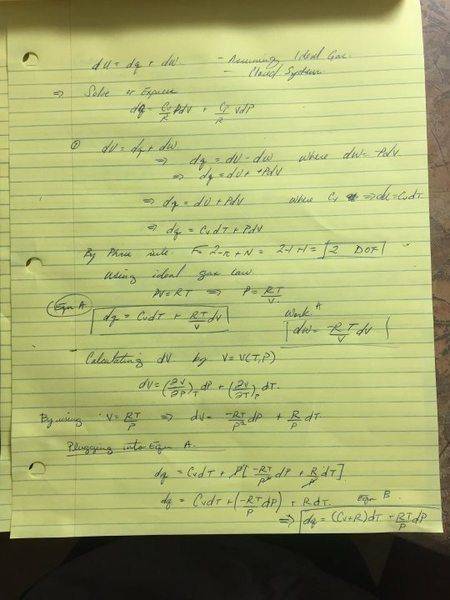 dU = dq + dW - Assuming Ideal Gas
- Closed System
⇒ Solve or Express
dq = Cv/R PdV + Cp/R VdP
① dU = dq + dW
⇒ dq = dU - dW where dW = -PdV
⇒ dq = dU + PdV
⇒ dq = dU + PdV where Cv ⇒ du = CvdT
⇒ dq = CvdT + PdV
By Phase rule F = 2 - π + N = 2-1+1 = 2 DOF
Using ideal gas law
PV = RT ⇒ P = RT/V
Eqn A dq = CvdT + RT/V dV Work A dW = -RT/V dV
Calculating dV by V = V(T,P)
dV = (∂V/∂P)_T dP + (∂V/∂T)_P dT.
By using V = RT/P ⇒ dV = -RT/P² dP + R/P dT
Plugging into Eqn A.
dq = CvdT + P[-RT/P² dP + R/P dT]
dq = CvdT + (-RT/P dP) + RdT. Eqn B
⇒ dq = (Cv+R)dT + RT/P dP